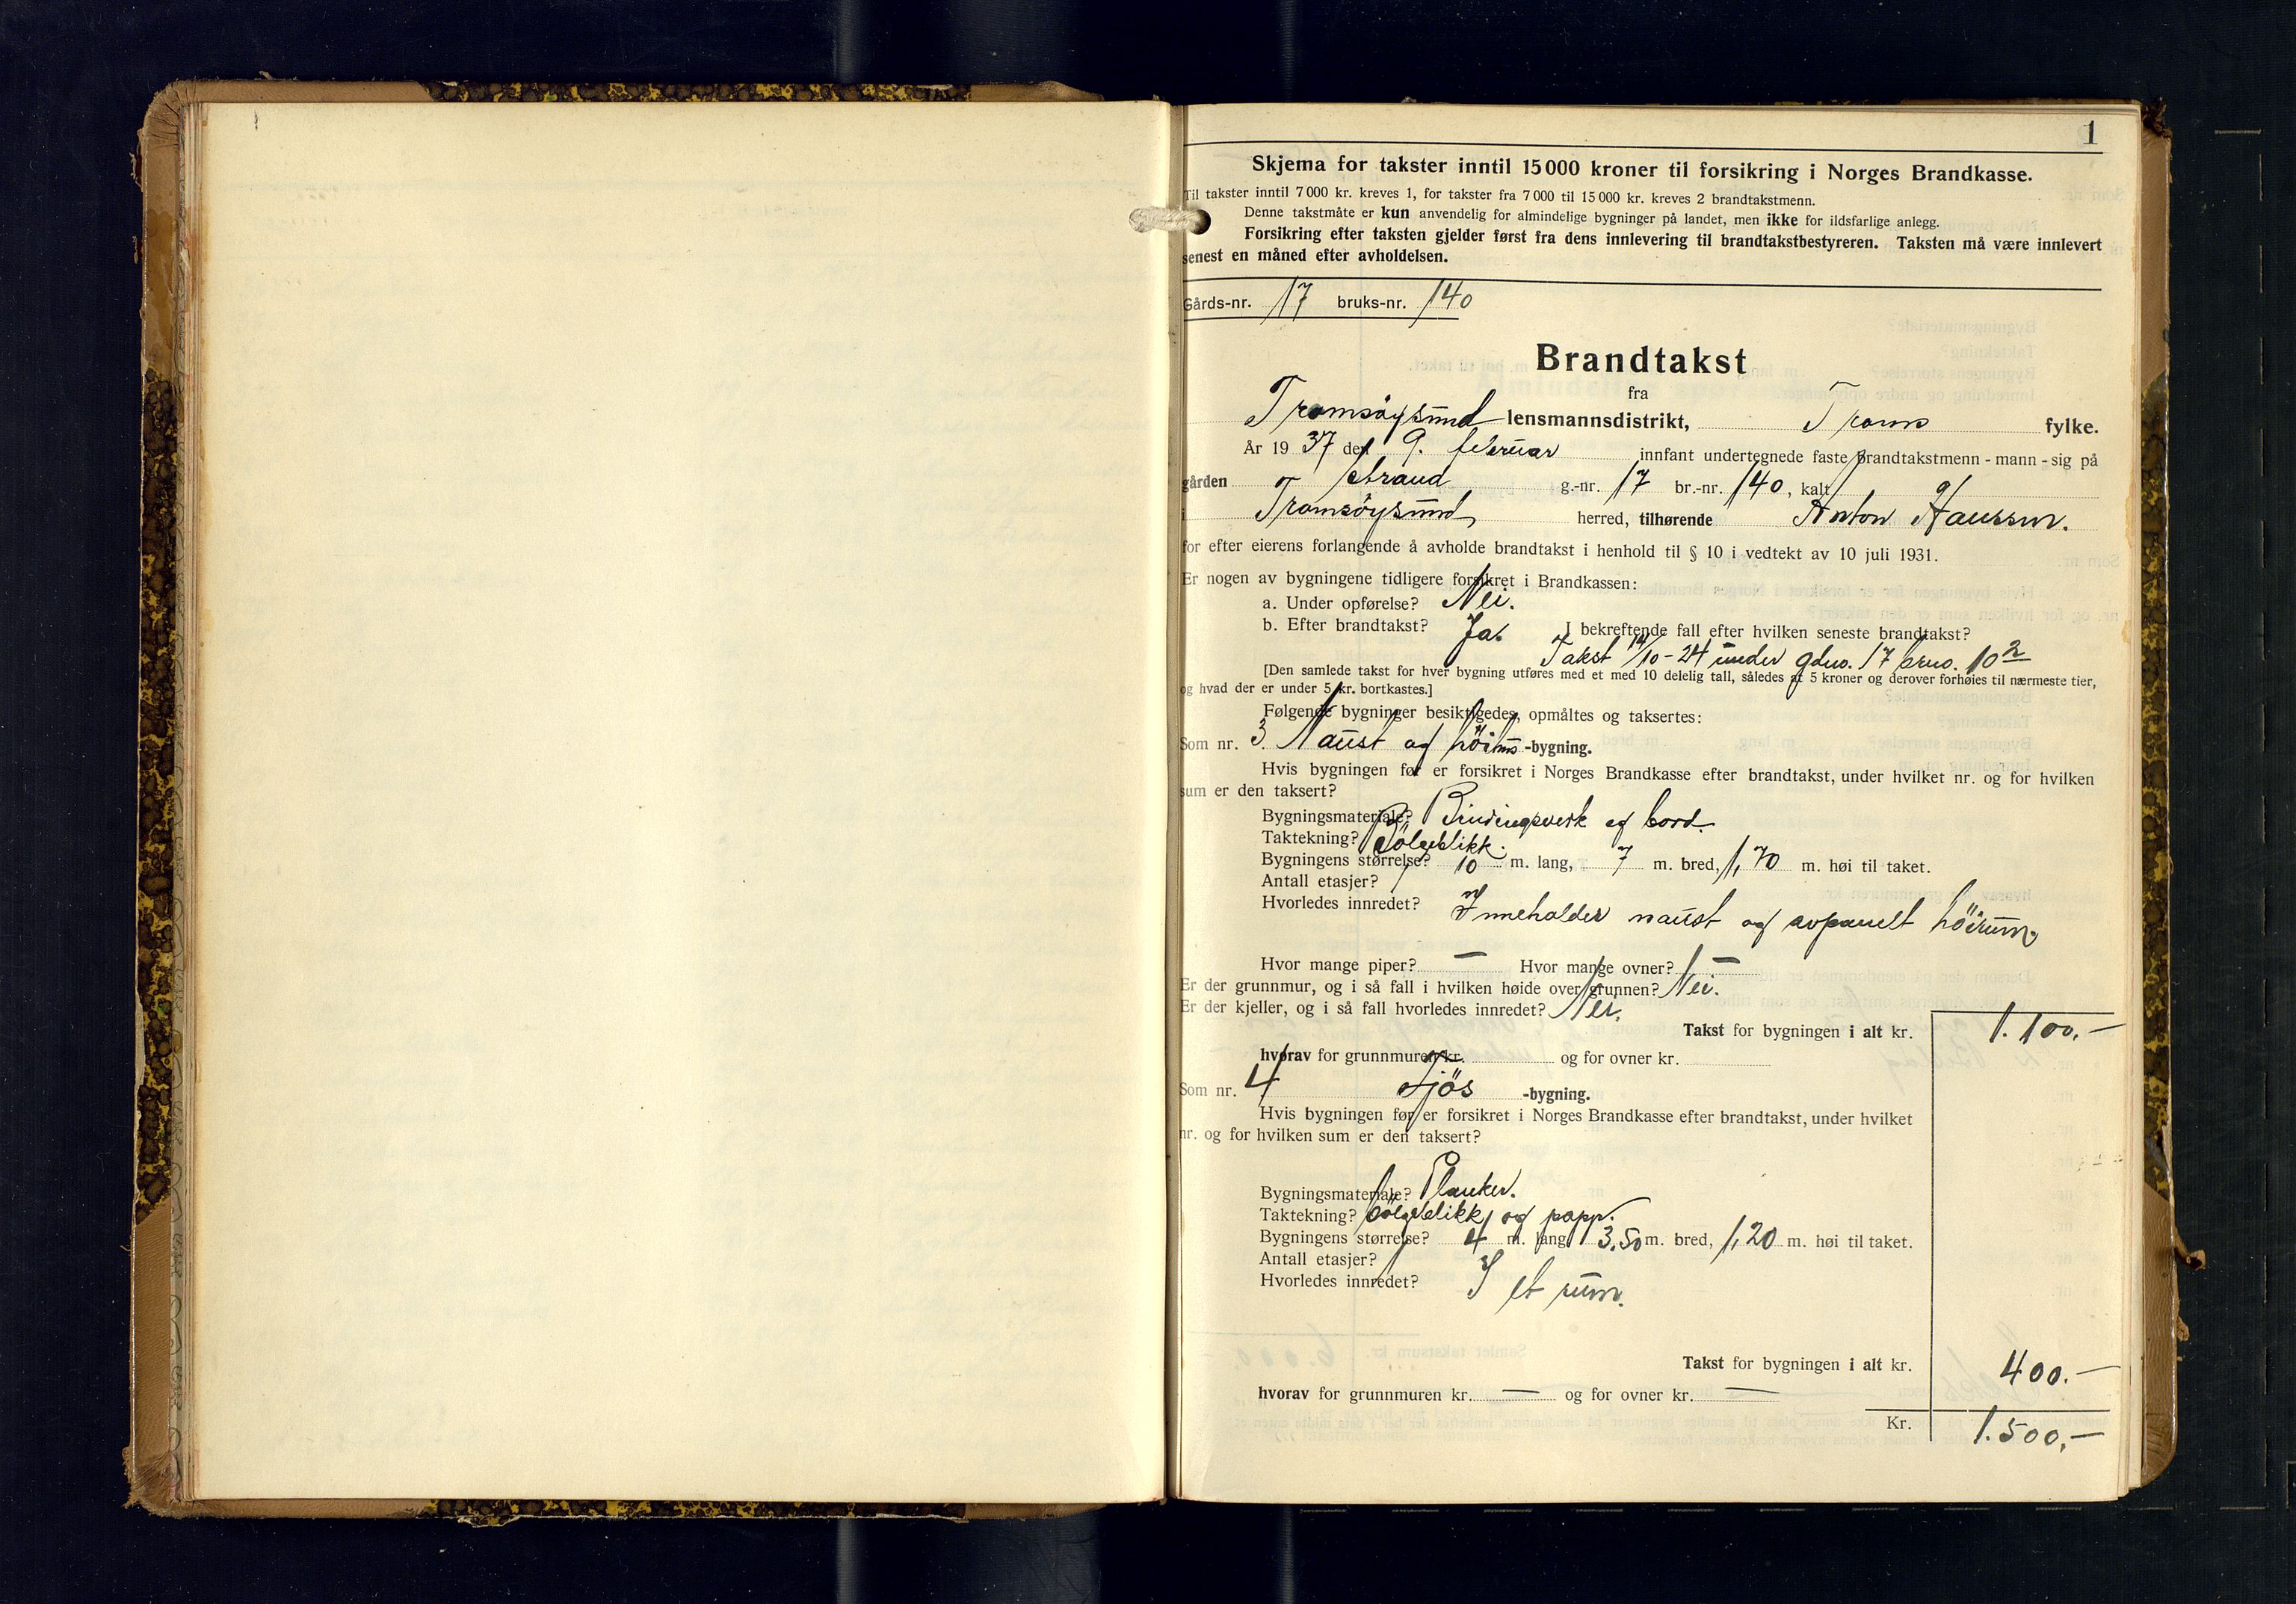 1
Skjema for takster inntil 15 000 kroner til forsikring i Norges Brandkasse.
Til takster inntil 7 000 kr. kreves 1, for takster fra 7 000 til 15 000 kr. kreves 2 brandtakstmenn.
Denne takstmåte er kun anvendelig for almindelige bygninger på landet, men ikke for ildsfarlige anlegg.
Forsikring efter taksten gjelder først fra dens innlevering til brandtakstbestyreren. Taksten må være innlevert
senest en måned efter avholdelsen.
Gårds-nr. 17 bruks-nr. 140
Brandtakst
fra
Tromsöysund lensmannsdistrikt, Troms fylke.
År 1937 den 9. februar innfant undertegnede faste brandtakstmenn - mann - sig på
gården Strand g.-nr. 17 br.-nr. 140, kalt
i Tromsöysund herred, tilhørende Anton Hanssen.
for efter eierens forlangende å avholde brandtakst i henhold til § 10 i vedtekt av 10 juli 1931.
Er nogen av bygningene tidligere forsikret i Brandkassen:
a. Under opførelse? Nei.
b. Efter brandtakst? Ja. I bekreftende fall efter hvilken seneste brandtakst?
Takst 14/10-24 under gdno. 17 brno. 10
[Den samlede takst for hver bygning utføres med et med 10 delelig tall, således at 5 kroner og derover forhøies til nærmeste tier,
og hvad der er under 5 kr. bortkastes.]
Følgende bygninger besiktigedes, opmåltes og taksertes:
Som nr. 3. Naust og höihus-bygning.
Hvis bygningen før er forsikret i Norges Brandkasse efter brandtakst, under hvilket nr. og for hvilken
sum er den taksert?
Bygningsmateriale? Bindingsverk og bord.
Taktekning? Bölgeblikk.
Bygningens størrelse? 10 m. lang, 7 m. bred, 1,70 m. høi til taket.
Antall etasjer? 1
Hvorledes innredet? Inneholder naust og avpanelt höirum.
Hvor mange piper? — Hvor mange ovner? —
Er der grunnmur, og i så fall i hvilken høide over grunnen? Nei.
Er der kjeller, og i så fall hvorledes innredet? Nei.
Takst for bygningen i alt kr. 1.100,-
hvorav for grunnmuren kr. og for ovner kr.
Som nr. 4 Fjös -bygning.
Hvis bygningen før er forsikret i Norges Brandkasse efter brandtakst, under hvilket
nr. og for hvilken sum er den taksert?
Bygningsmateriale? Planker.
Taktekning? Bölgeblikk og papp.
Bygningens størrelse? 4 m. lang, 3.50 m. bred, 1,20 m. høi til taket.
Antall etasjer? 1
Hvorledes innredet? I et rum.
Takst for bygningen i alt kr. 400.-
hvorav for grunnmuren kr. — og for ovner kr. —
Kr. 1.500,-